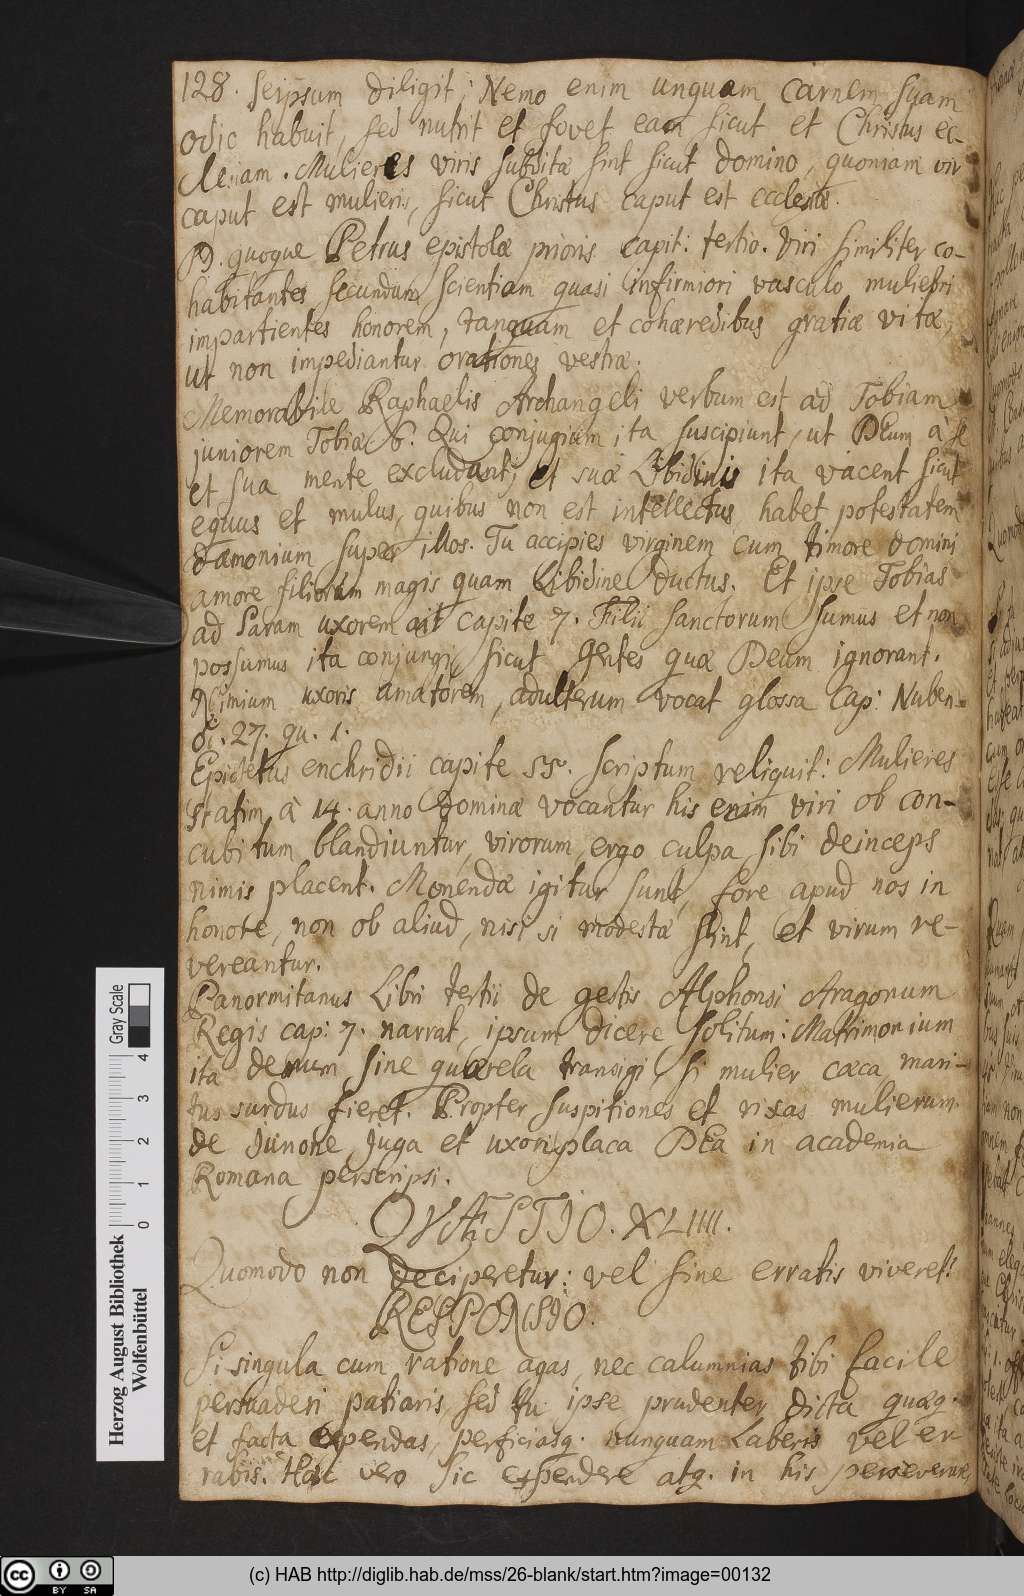 128. Seipsum diligit; Nemo enim unquam carnem suam
odio habuit, sed nutrit et fovet eam sicut et Christus ec-
clesiam. Mulieres viris subditæ sint sicut domino, quoniam vir
caput est mulieris, sicut Christus caput est ecclesiæ.
D. quoque Petrus epistolæ prioris capit: tertio. Viri similiter co-
habitantes secundum scientiam quasi infirmiori vasculo muliebri
impartientes honorem, tanquam et cohæredibus gratiæ vitæ,
ut non impediantur orationes vestræ.
Memorabile Raphaelis Archangeli verbum est ad Tobiam
juniorem Tobiæ 6. Qui conjugium ita suscipiunt, ut DEum à se
et sua mente excludant; et suæ Libidinis ita vacent sicut
equus et mulus, quibus non est intellectus habet potestatem
dæmonium super illos. Tu accipies virginem cum timore domini
amore filiorum magis quam Libidine ductus. Et ipse Tobias
ad Saram uxorem ait capite 7. Filii sanctorum sumus et non
possumus ita conjungi, sicut gentes quæ Deum ignorant.
Nimium uxoris amatorem, adulterum vocat glossa cap: Nuben-
di. 27. qu. 1.
Epictetus enchridii capite 55. scriptum reliquit: Mulieres
statim à 14. anno dominæ vocantur his enim viri ob con-
cubitum blandiuntur, virorum ergo culpa sibi deinceps
nimis placent. Monendæ igitur sunt, fore apud nos in
honore, non ob aliud, nisi si modestæ sint, et virum re-
vereantur.
Panormitanus Libri tertii de gestis Alphonsi Aragonum
Regis cap: 7. narrat, ipsum dicere solitum: Matrimonium
ita demum sine quærela transigi, si mulier cæca, mari-
tus surdus fieret. Propter suspitiones et rixas mulierum
de Junone Juga et uxoriplaca DEa in academia
Romana perscripsi.
QVÆSTIO. XLIIII.
Quomodo non deciperetur: vel sine erratis viveret?
RESPONSIO.
Si singula cum ratione agas, nec calumnias tibi facile
persuaderi patiaris, sed tu ipse prudenter dicta quæq.
et facta expendas, perficiasq. nunquam Laberis vel er-
rabis. Hæc vero sic expendere atq. in his perseverare,
Herzog August Bibliothek
Wolfenbüttel
0 1 2 3 4
Gray Scale
cc BY SA
(c) HAB http://diglib.hab.de/mss/26-blank/start.htm?image=00132